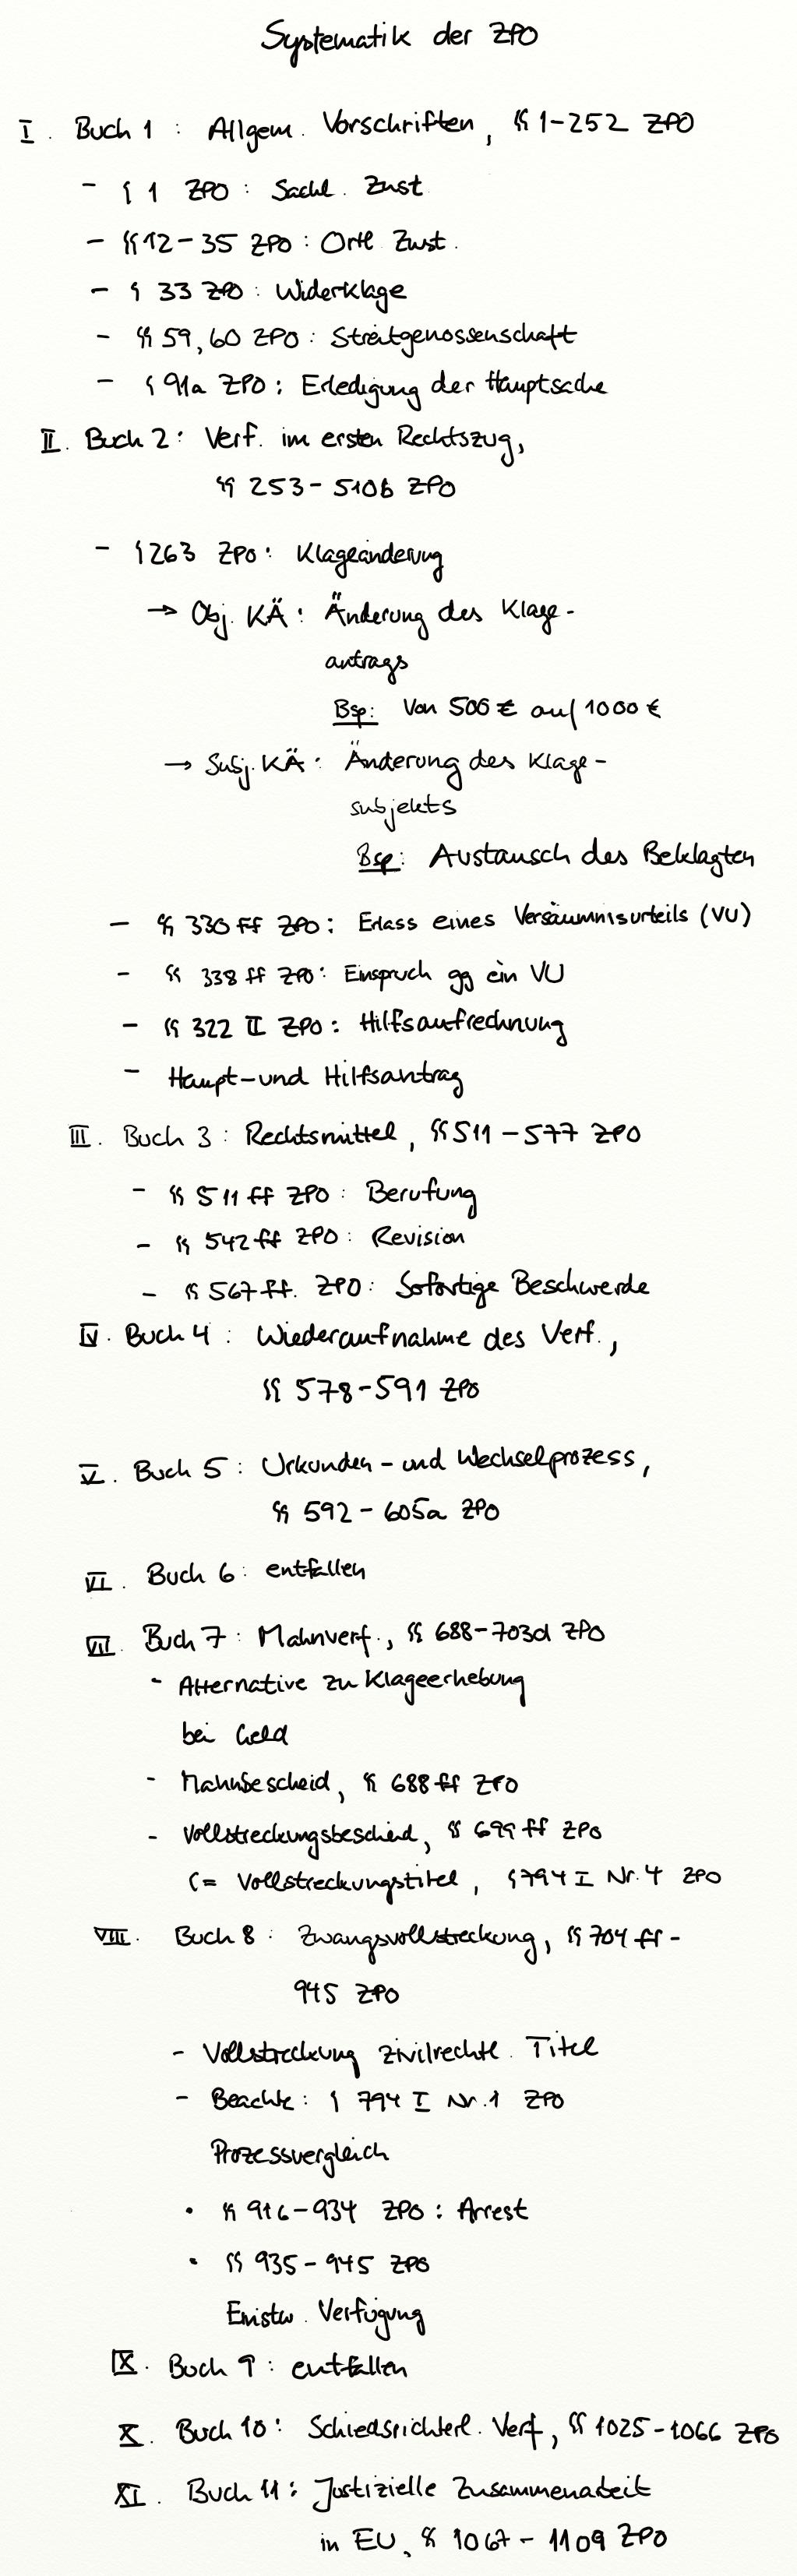 Systematik der ZPO
I. Buch 1: Allgem. Vorschriften, §§ 1-252 ZPO
- § 1 ZPO: Sachl. Zust.
- §§ 12-35 ZPO: Örtl. Zust.
- § 33 ZPO: Widerklage
- §§ 59, 60 ZPO: Streitgenossenschaft
- § 91a ZPO: Erledigung der Hauptsache
II. Buch 2: Verf. im ersten Rechtszug,
§§ 253-510b ZPO
- § 263 ZPO: Klageänderung
→ Obj. KÄ: Änderung des Klage-
antrags
Bsp: Von 500 € auf 1000 €
→ Subj. KÄ: Änderung des Klage-
subjekts
Bsp: Austausch des Beklagten
- §§ 330 ff ZPO: Erlass eines Versäumnisurteils (VU)
- §§ 338 ff ZPO: Einspruch gg ein VU
- §§ 322 II ZPO: Hilfsaufrechnung
- Haupt- und Hilfsantrag
III. Buch 3: Rechtsmittel, §§ 511-577 ZPO
- §§ 511 ff ZPO: Berufung
- §§ 542 ff ZPO: Revision
- §§ 567 ff. ZPO: Sofortige Beschwerde
IV. Buch 4: Wiederaufnahme des Verf.,
§§ 578-591 ZPO
V. Buch 5: Urkunden- und Wechselprozess,
§§ 592-605a ZPO
VI. Buch 6: entfallen
VII. Buch 7: Mahnverf., §§ 688-703d ZPO
- Alternative zu Klageerhebung
bei Geld
- Mahnbescheid, §§ 688 ff ZPO
- Vollstreckungsbescheid, §§ 699 ff ZPO
(= Vollstreckungstitel, § 794 I Nr. 4 ZPO
VIII. Buch 8: Zwangsvollstreckung, §§ 704 ff -
945 ZPO
- Vollstreckung zivilrechtl. Titel
- Beachte: § 794 I Nr. 1 ZPO
Prozessvergleich
• §§ 916-934 ZPO: Arrest
• §§ 935-945 ZPO
Einstw. Verfügung
IX. Buch 9: entfallen
X. Buch 10: Schiedsrichterl. Verf, §§ 1025-1066 ZPO
XI. Buch 11: Justizielle Zusammenarbeit
in EU, §§ 1067-1109 ZPO